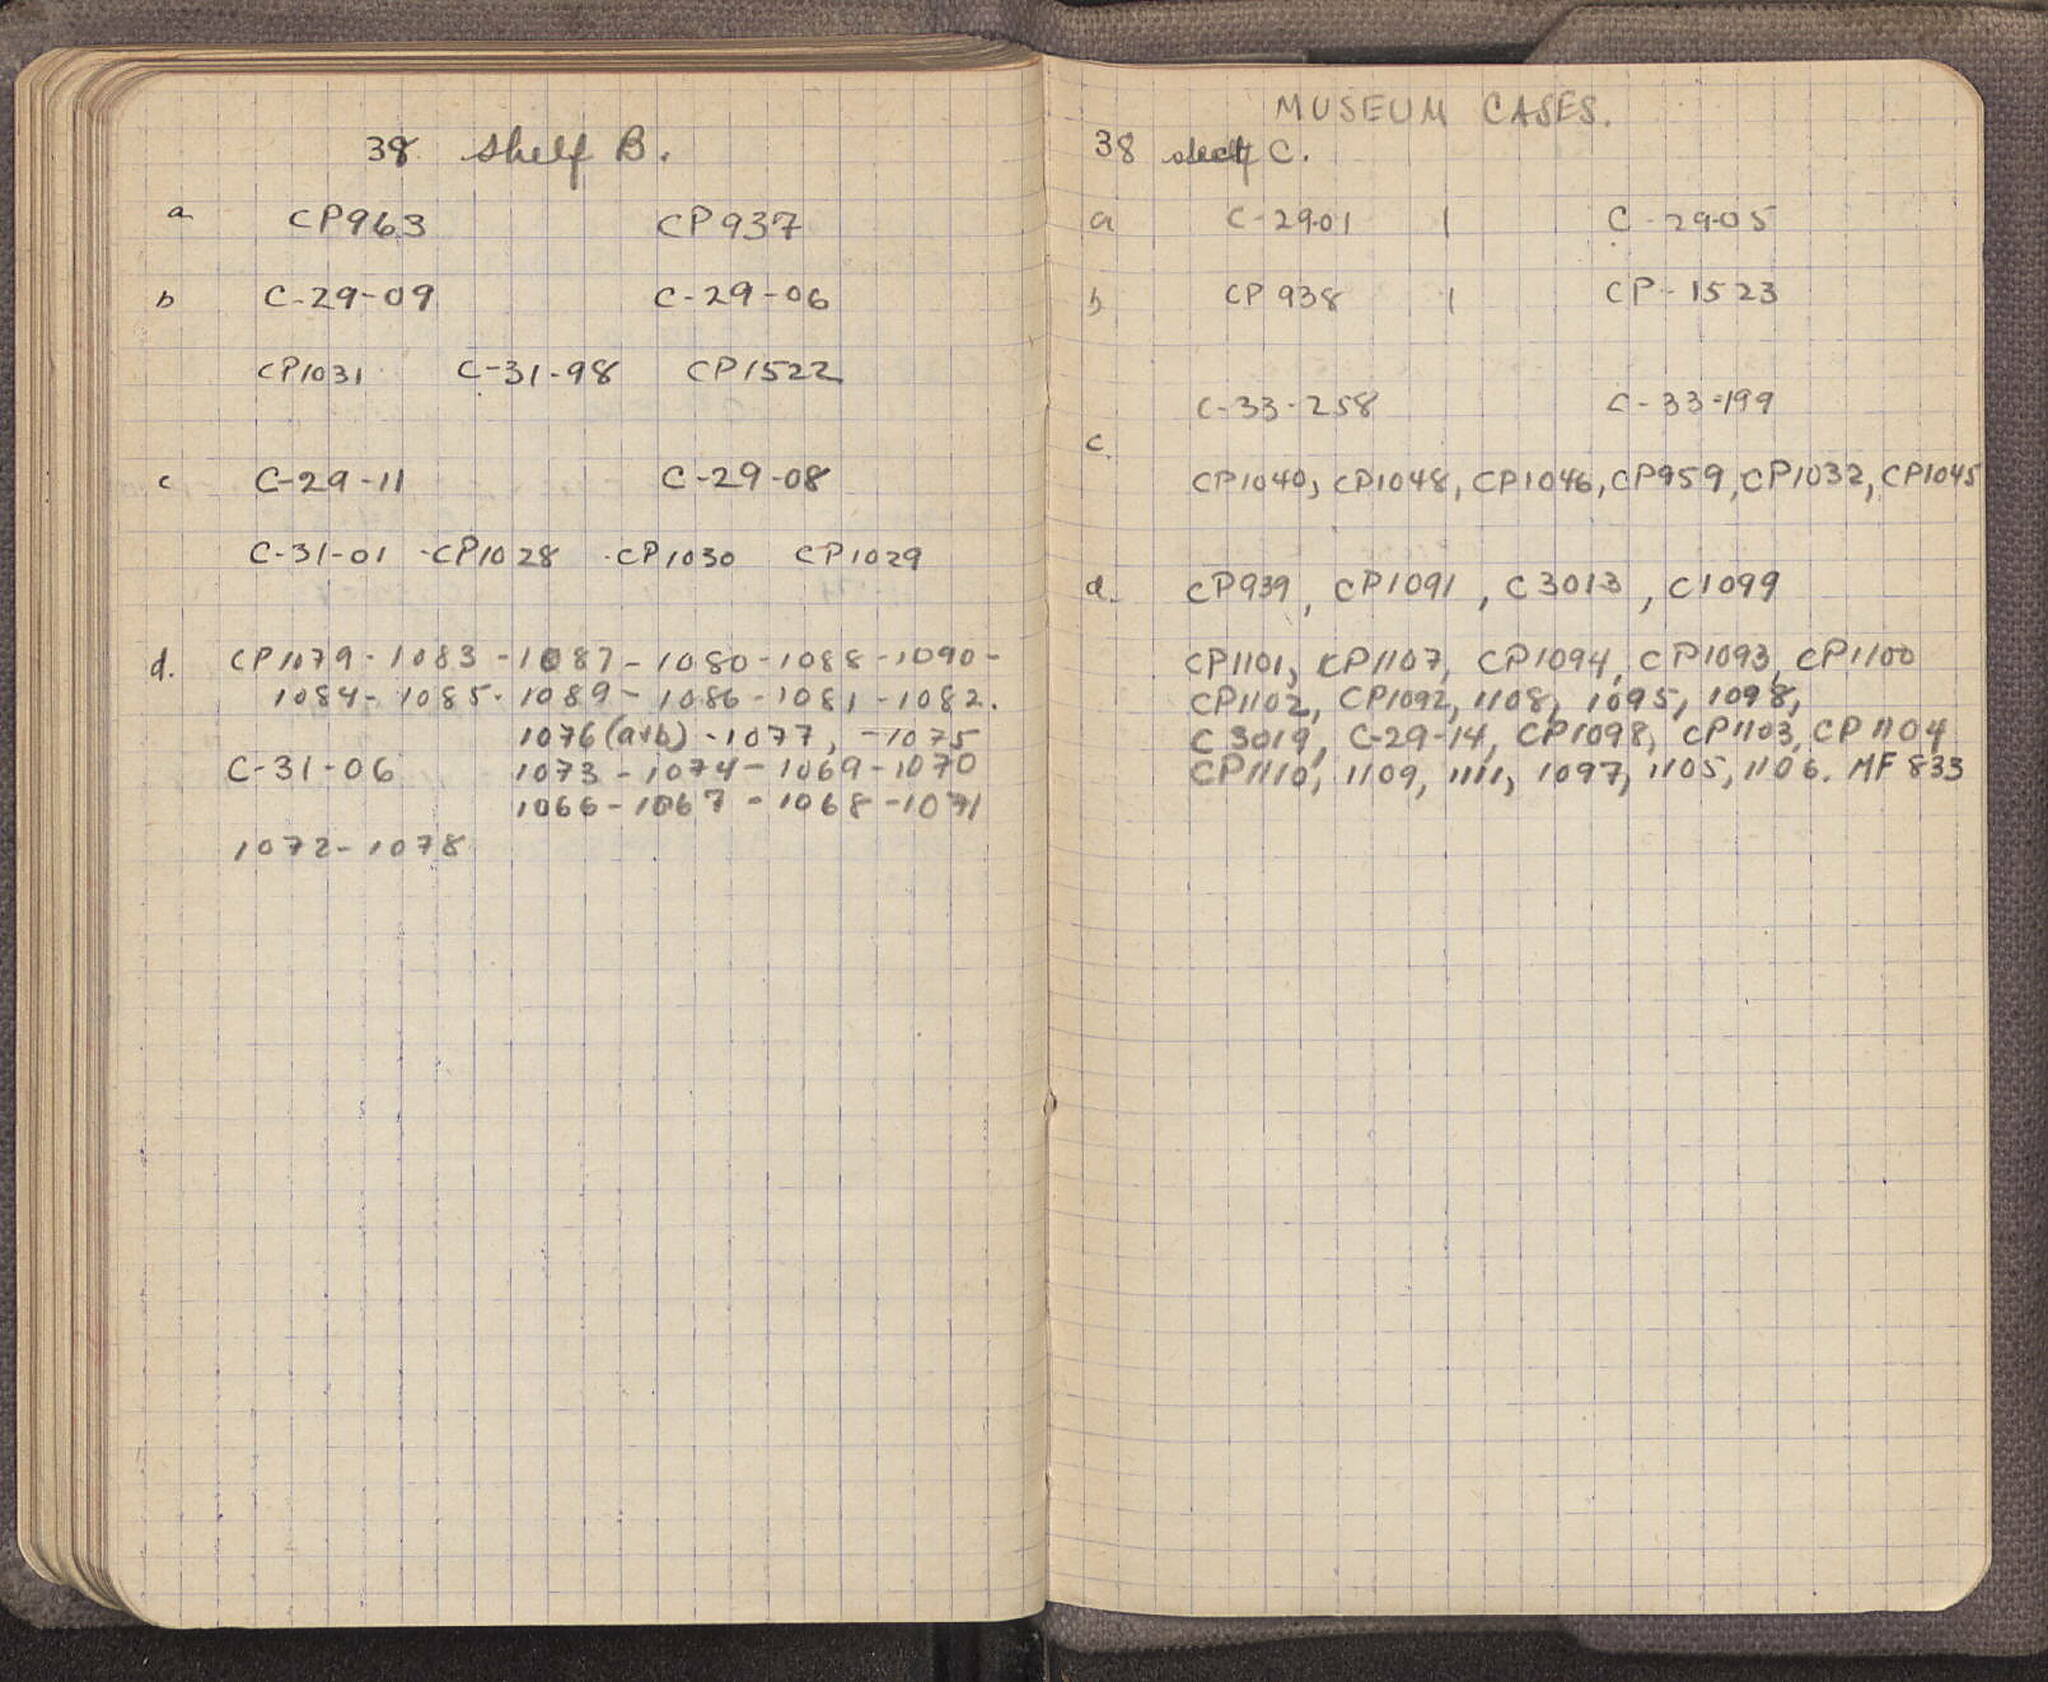 38 shelf B.
a CP963 CP937
b C-29-09 C-29-06
CP1031 C-31-98 CP1522
c C-29-11 C-29-08
C-31-01 -CP1028 -CP1030 CP1029
d. CP1079-1083-1087-1080-1088-1090-
1084-1085-1089-1086-1081-1082.
1076(a+b)-1077, -1075
C-31-06 1073-1074-1069-1070
1066-1067-1068-1071
1072-1078
MUSEUM CASES.
38 C.
a C-29-01 | C-29-05
b CP 938 | CP-1523
C-33-258 C-33-199
c.
CP1040, CP1048, CP1046, CP959, CP1032, CP1045
d. CP939, CP1091, C3013, C1099
CP1101, CP1107, CP1094, CP1093, CP1100
CP1102, CP1092, 1108, 1095, 1098,
C 3019, C-29-14, CP1098, CP1103, CP1104
CP1110, 1109, 1111, 1097, 1105, 1106. MF 833